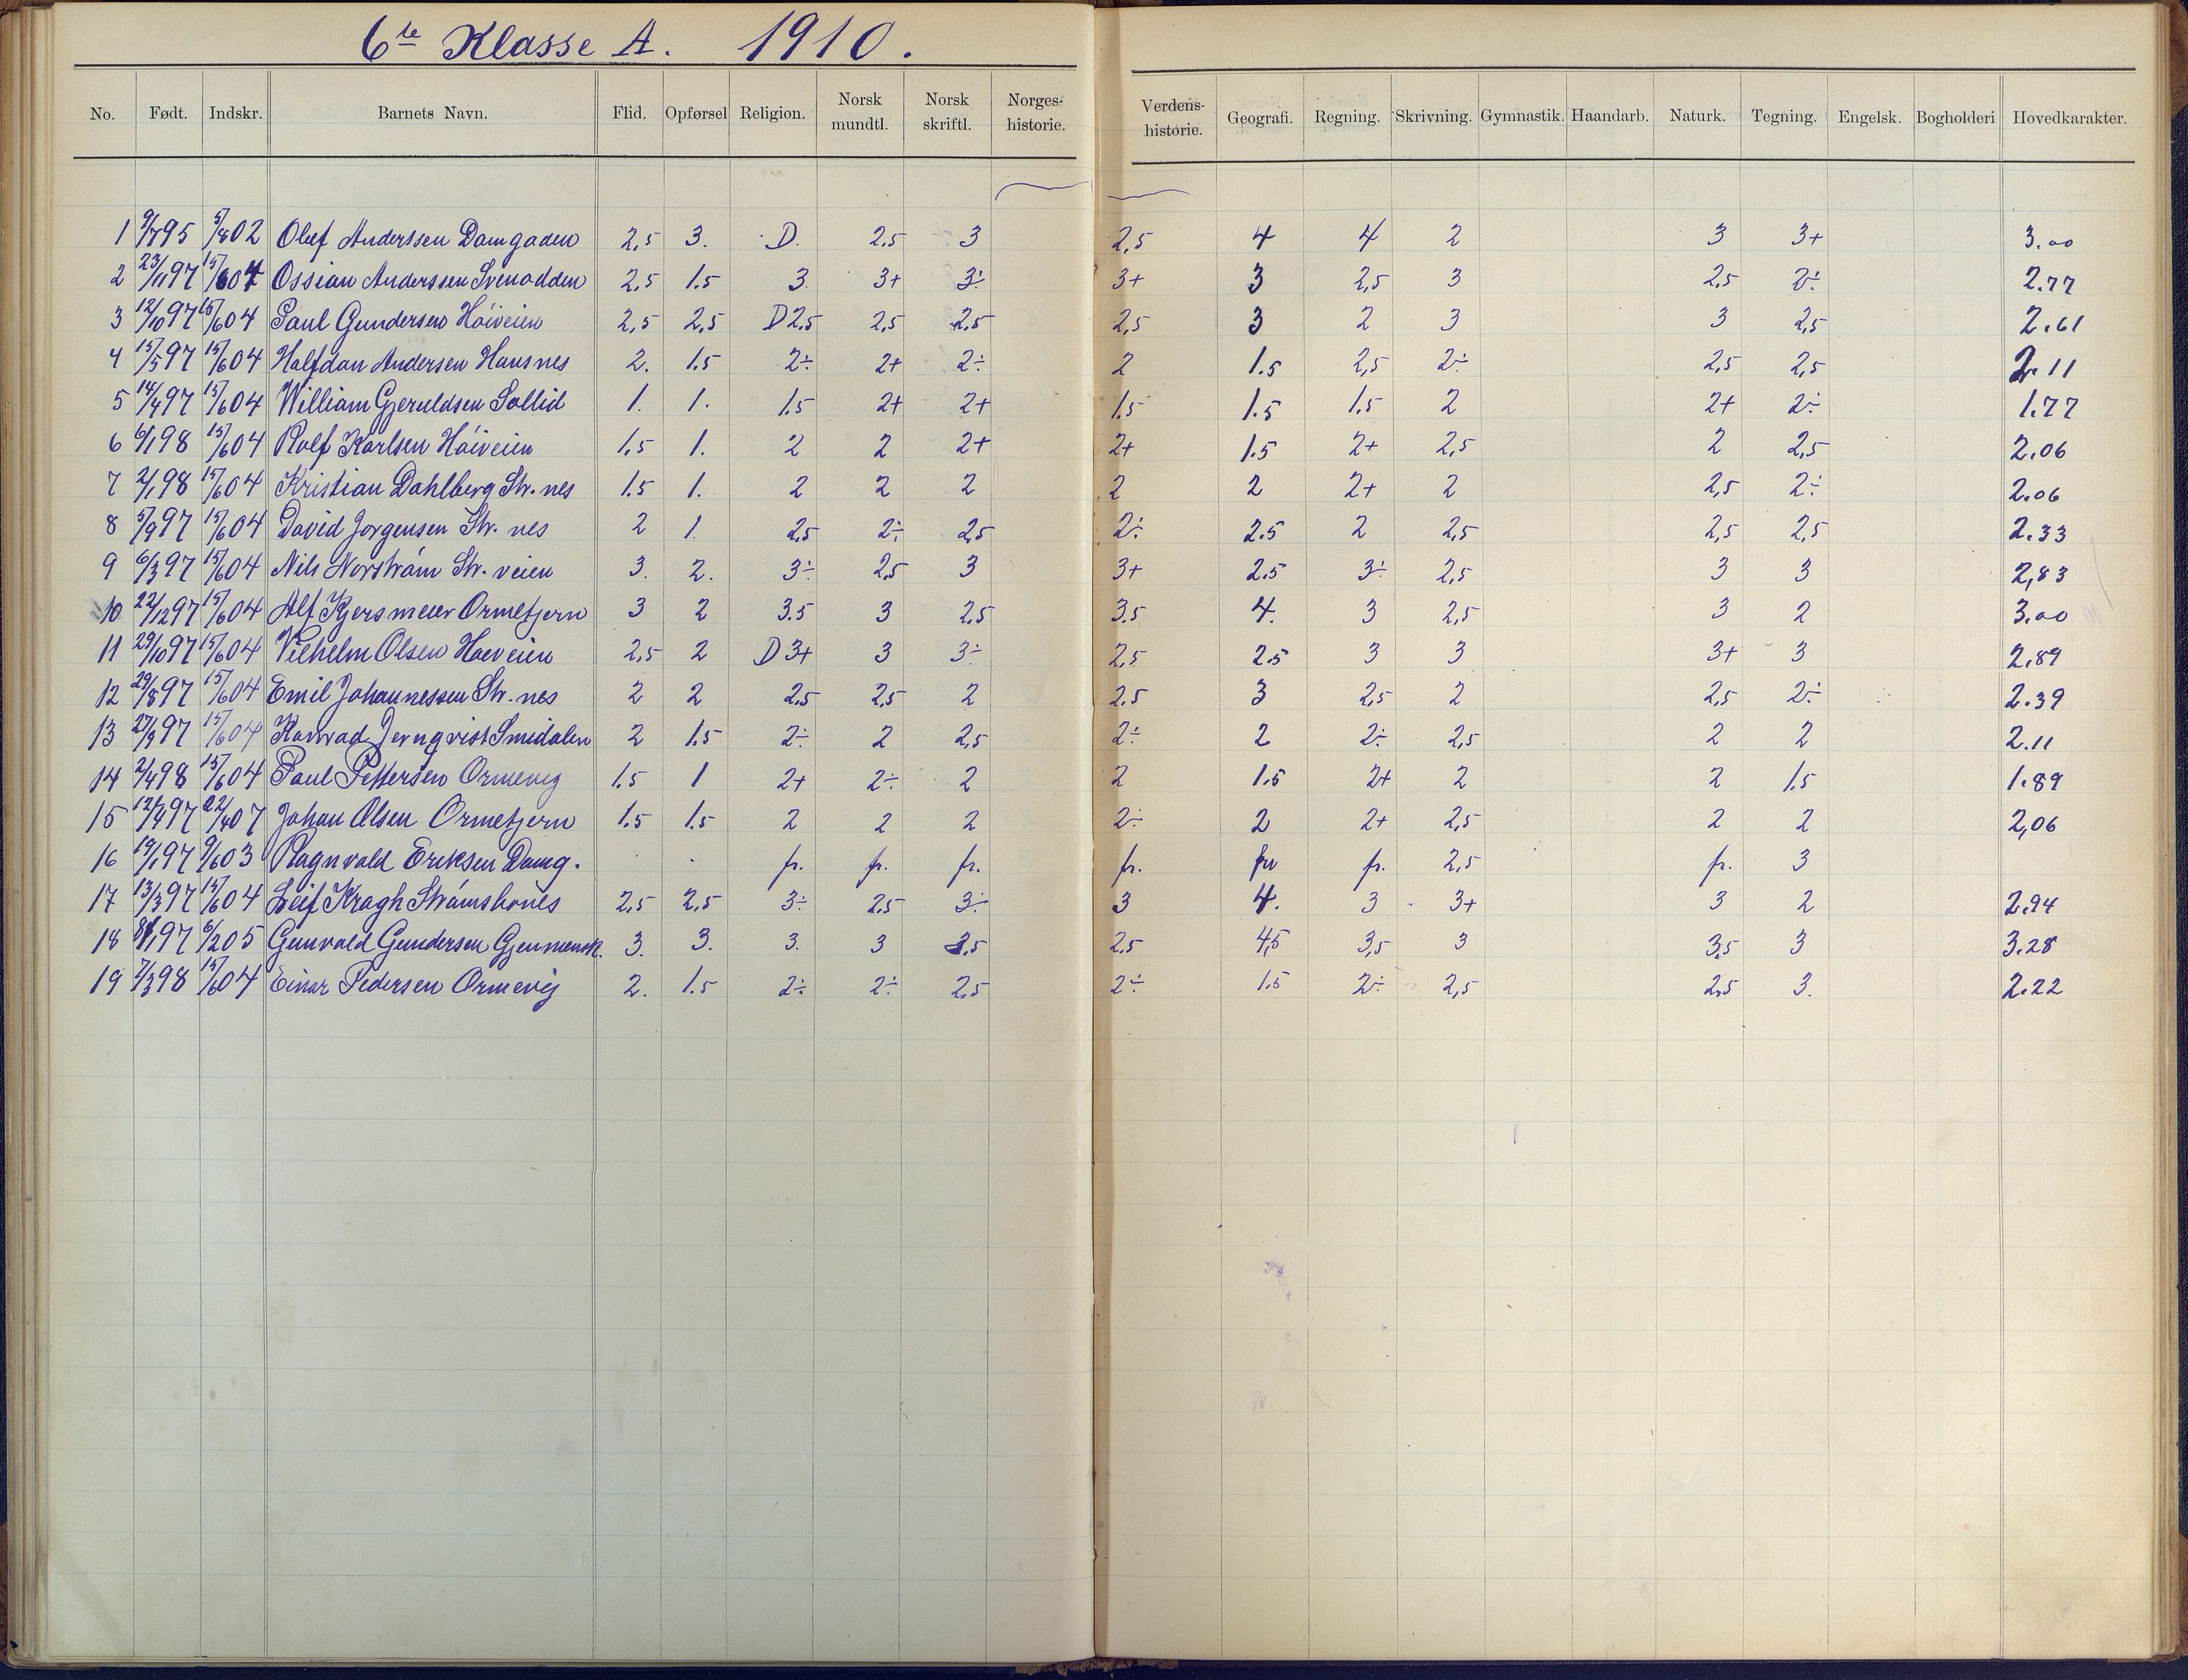 6te Klasse A. 1910.
No. Født. Indskr. Barnets Navn. Flid. Opførsel Religion. Norsk mundtl. Norsk skriftl. Norges-historie. Verdens-historie. Geografi. Regning. Skrivning. Gymnastik. Haandarb. Naturk. Tegning. Engelsk. Bogholderi Hovedkarakter.
1 9/7 95 5/8 02 Olef Anderssen Damgaden 2,5 3. D. 2.5 3 2,5 4 4 2 3 3+ 3.00
2 23/11 97 15/6 04 Ossian Anderssen Svenodden 2,5 1.5 3. 3+ 3÷ 3+ 3 2,5 3 2,5 2÷ 2.77
3 12/10 97 15/6 04 Paul Gundersen Høiveien 2,5 2,5 D 2.5 2,5 2.5 2,5 3 2 3 3 2,5 2.61
4 15/5 97 15/6 04 Halfdan Andersen Hausnes 2. 1.5 2÷ 2+ 2÷ 2 1.5 2,5 2÷ 2,5 2,5 2.11
5 14/4 97 15/6 04 William Gjeruldsen Sollid 1. 1. 1.5 2+ 2+ 1.5 1.5 1.5 2 2+ 2÷ 1.77
6 6/1 98 15/6 04 Rolf Karlsen Høiveien 1.5 1. 2 2 2+ 2+ 1.5 2+ 2,5 2 2,5 2.06
7 2/1 98 15/6 04 Kristian Dahlberg Str. nes 1.5 1. 2 2 2 2 2 2+ 2 2,5 2÷ 2.06
8 5/9 97 15/6 04 David Jorgensen Str. nes 2 1. 2.5 2÷ 2,5 2÷ 2.5 2 2,5 2,5 2,5 2.33
9 6/3 97 15/6 04 Nils Norstrøm Str. veien 3. 2. 3÷ 2.5 3 3+ 2.5 3÷ 2,5 3 3 2,83
10 22/12 97 15/6 04 Alf Kjersmeier Ormetjern 3 2 3.5 3 2.5 3.5 4. 3 2,5 3 2 3.00
11 29/10 97 15/6 04 Vilhelm Olsen Høiveien 2,5 2 D 3+ 3 3÷ 2,5 2.5 3 3 3+ 3 2.89
12 29/8 97 15/6 04 Emil Johannessen Str. nes 2 2 2.5 2,5 2 2.5 3 2,5 2 2,5 2÷ 2.39
13 27/9 97 15/6 04 Konrad Jernqvist Smidalen 2 1.5 2÷ 2 2,5 2÷ 2 2÷ 2,5 2 2 2.11
14 2/4 98 15/6 04 Paul Pettersen Ormevig 1.5 1 2+ 2÷ 2 2 1.5 2+ 2 2 1.5 1.89
15 12/4 97 22/4 07 Johan Olsen Ormetjern 1.5 1.5 2 2 2 2÷ 2 2+ 2,5 2 2 2,06
16 19/1 97 9/6 03 Ragnvald Eriksen Damg. fr. fr. fr. fr. fr fr. 2,5 fr. 3
17 13/3 97 15/6 04 Leif Kragh Strømsbones 2,5 2,5 3÷ 2.5 3÷ 3 4. 3 3+ 3 2 2.94
18 8/1 97 6/2 05 Gunvald Gundersen 3. 3. 3. 3 3.5 2.5 4,5 3,5 3 3,5 3 3.28
19 7/3 98 15/6 04 Einar Pedersen Ormevig 2. 1.5 2÷ 2÷ 2.5 2÷ 1.5 2÷ 2,5 2,5 3. 2.22